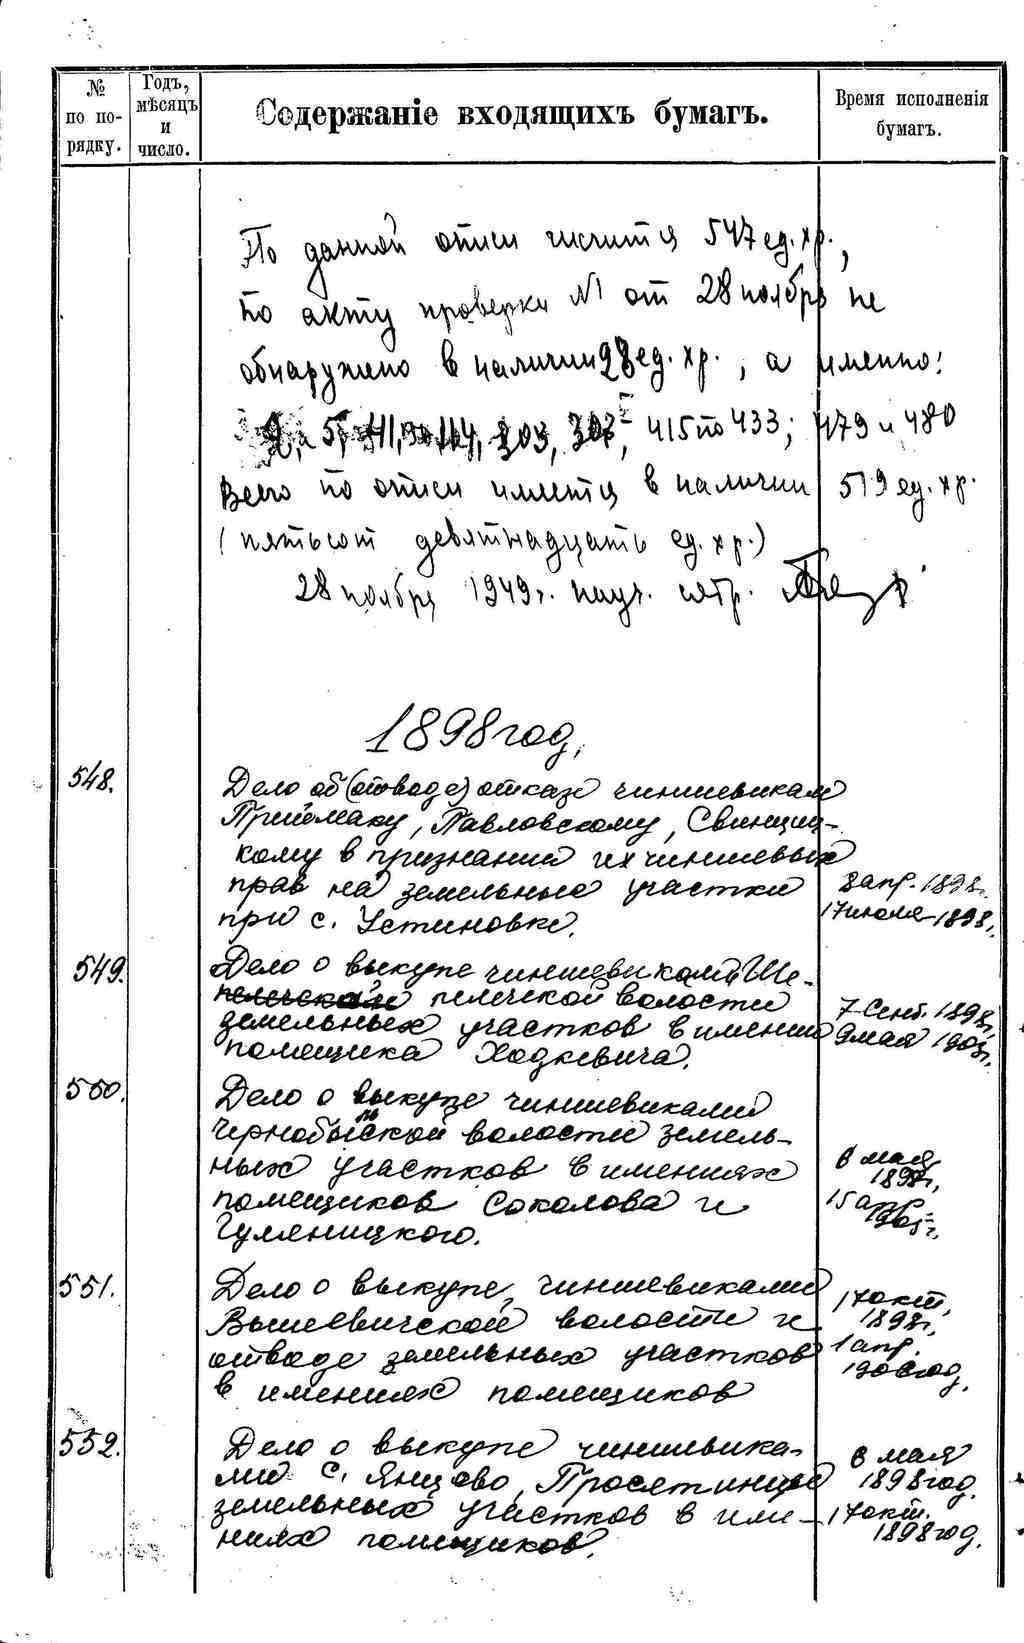 № по порядку.
Годъ, мѣсяцъ и число.
Содержаніе входящихъ бумагъ.
Время исполненія бумагъ.
По данной описи числится 547 ед. хр.,
по акту проверки №1 от 28 ноября не
обнаружено в наличии 28 ед. хр., а именно:
415 по 433; 479 и 480
Всего по описи имеется в наличии 519 ед. хр.
(пятьсот девятнадцать ед. хр.)
28 ноября 1949г. науч. сотр.
1898 год.
548.
Дело об (отводе) отказе чиншевикам
Приймаку, Павловскому, Свинциц-
кому в признании их чиншевых
прав на земельные участки
при с. Устиновке.
8 апр. 1898г.
17 июля 1898г.
549.
Дело о выкупе чиншевиками Ше-
пелечской волости
земельных участков в имении
помещика Ходкевича.
7 сент. 1898г.
9 мая 1905г.
550.
Дело о выкупе чиншевиками
Чернобыльской волости земель-
ных участков в имениях
помещиков Соколова и
Гуляницкого.
6 мая
1898г.
15 апр.
1905г.
551.
Дело о выкупе, чиншевиками
Вышевичской волости и
отводе земельных участков
в имениях помещиков
17 окт.
1898г.
1 апр.
1906 год.
552.
Дело о выкупе чиншевика-
ми с. Янцево,
земельных участков в име-
ниях помещиков.
6 мая
1898 год.
17 окт.
1898 год.